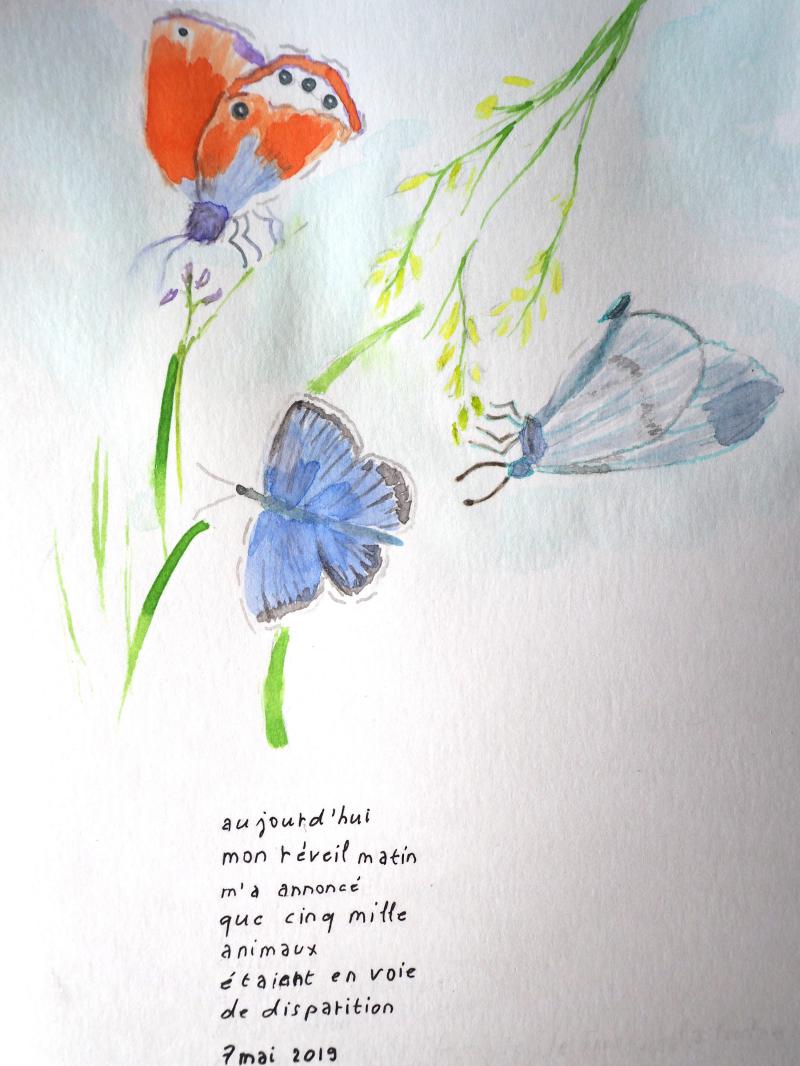 aujourd'hui
mon réveil matin
m'a annoncé
que cinq mille
animaux
étaient en voie
de disparition
7 mai 2019